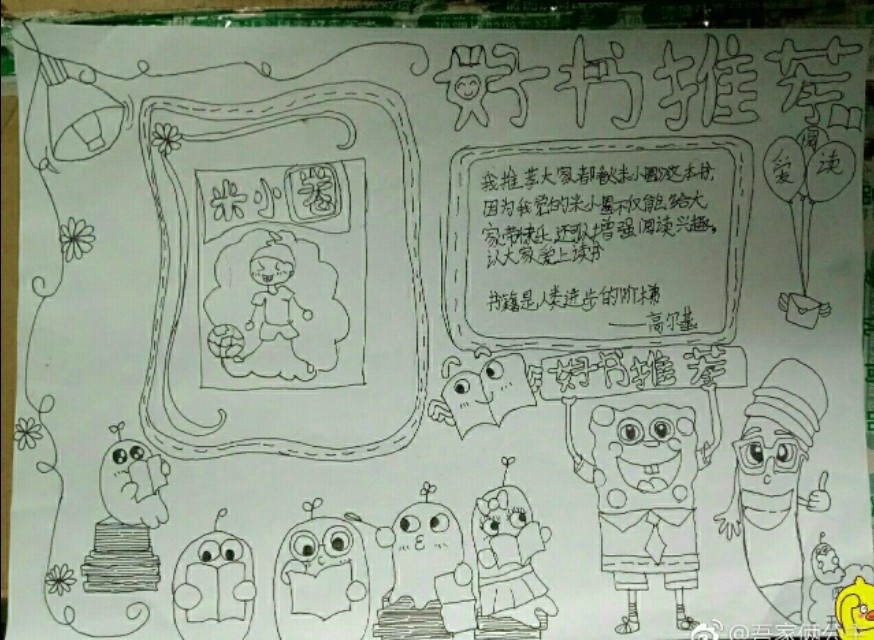 好书推荐
米小圈
我推荐大家都看米小圈这本书
因为我爱的米小圈不仅能给大
家带快乐还可以增强阅读兴趣。
认大家爱上读书
书籍是人类进步的阶梯
——高尔基
爱阅读
好书推荐
@吾家俩公主